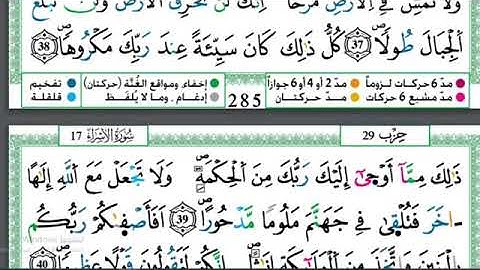 وَلَا تَمْشِ فِي الْأَرْضِ مَرَحًا إِنَّكَ لَن تَخْرِقَ الْأَرْضَ وَلَن تَبْلُغَ
الْجِبَالَ طُولًا 37 كُلُّ ذَٰلِكَ كَانَ سَيِّئَةً عِندَ رَبِّكَ مَكْرُوهًا 38
مدّ 6 حركات لزوماً مدّ 2 أو 4 أو 6 جوازاً إخفاء، ومواقع الغُنَّة (حركتان) تفخيم
مدّ مشبع 6 حركات مدّ حركتان إدغام، وما لا يُلفَظ قلقلة
285
حِزْب 29 سُورَةُ الْإِسْرَاءِ 17
ذَٰلِكَ مِمَّا أَوْحَىٰ إِلَيْكَ رَبُّكَ مِنَ الْحِكْمَةِ وَلَا تَجْعَلْ مَعَ اللَّهِ إِلَٰهًا
اخَرَ فَتُلْقَىٰ فِي جَهَنَّمَ مَلُومًا مَّدْحُورًا 39 أَفَأَصْفَىٰكُمْ رَبُّكُم
بِالْبَنِينَ وَاتَّخَذَ مِنَ الْمَلَٰئِكَةِ إِنَٰثًا إِنَّكُمْ لَتَقُولُونَ قَوْلًا عَظِيمًا 40